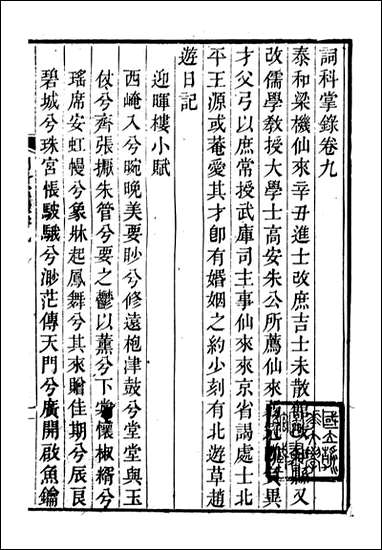 詞科掌錄卷九
泰和梁機仙來辛丑進士改庶吉士未散館改知縣又
改儒學教授大學士高安朱公所薦仙來異
才父弓以庶常授武庫司主事仙來來京省謁處士北
平王源或菴愛其才卽有婚姻之約少刻有北遊草趙
遊日記
迎暉樓小賦
西崦入兮晼晚美要眇兮修遠枹津鼓兮堂堂與玉
仗兮齊張振朱管兮要之鬱以薰兮下懷椒糈兮
瑤席安虹幔兮象牀起鳳舞兮其來贈佳期兮辰良
碧城兮珠宮悵駊騀兮渺茫傳天門兮廣開啟魚鑰